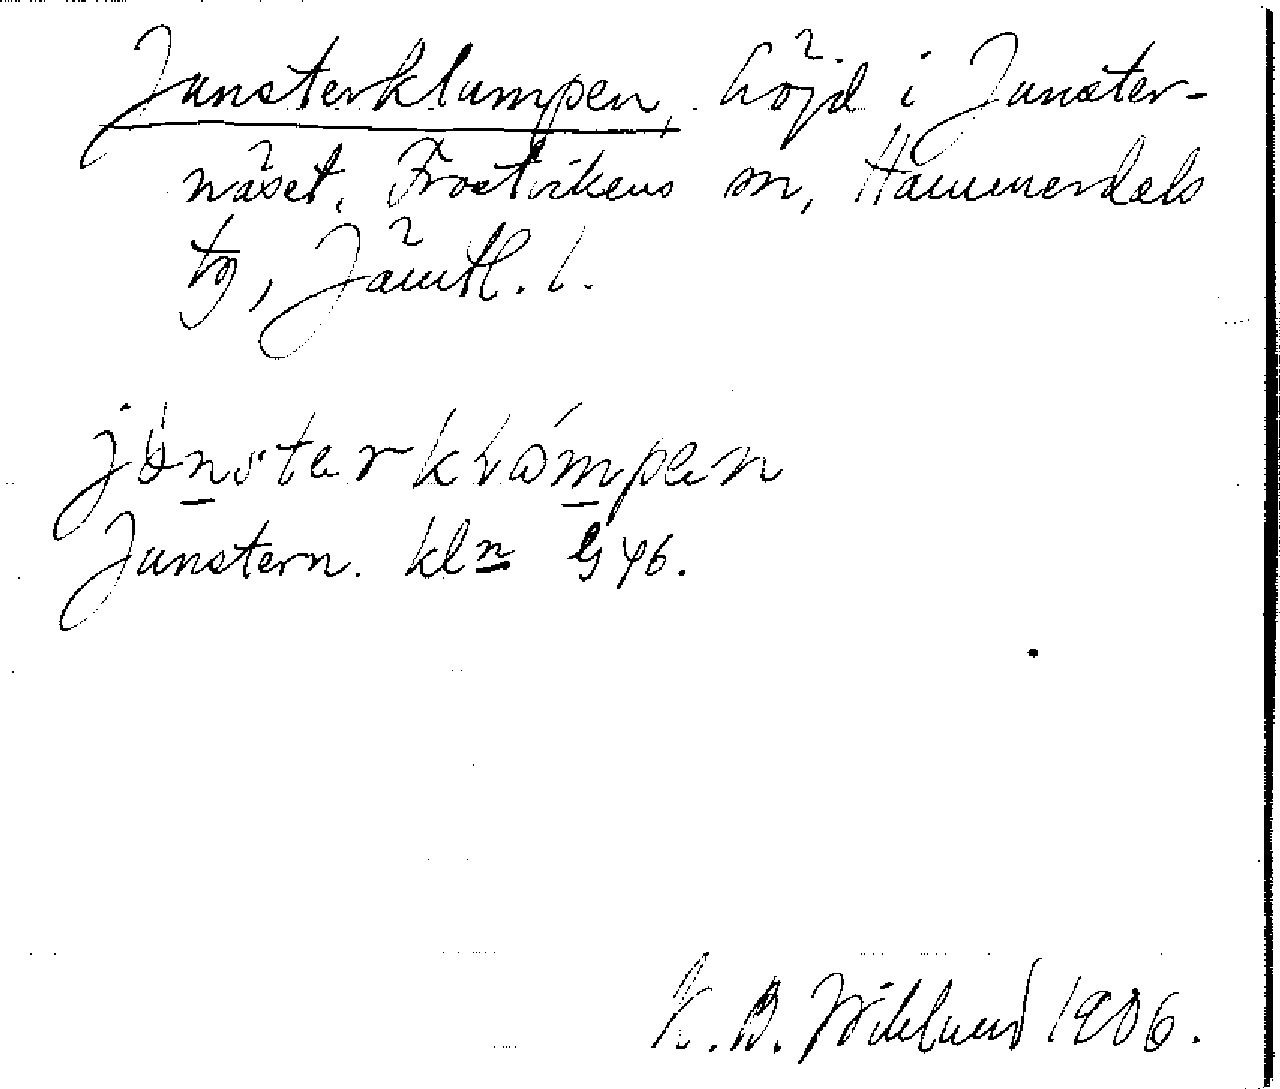 Junsterklumpen, höjd i Junster-
näset, Frostvikens sn, Hammerdals
tg, Jämtl. l.
jönsterklåmpen
Junstern. kln
K. B. Wiklund 1906.